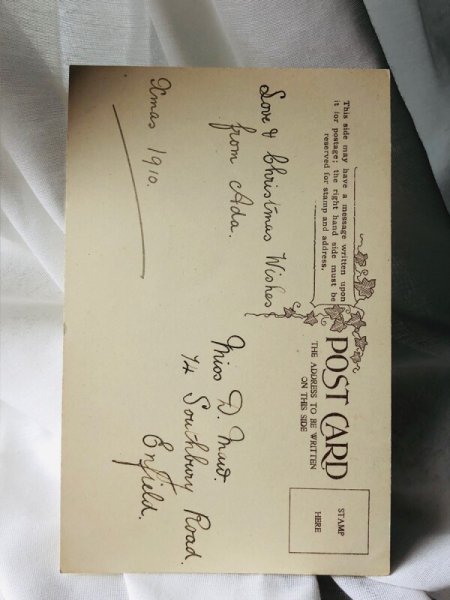 This side may have a message written upon
it for postage; the right hand side must be
reserved for stamp and address.
POST CARD
THE ADDRESS TO BE WRITTEN
ON THIS SIDE
STAMP
HERE
Love & Christmas Wishes
from Ada.
Xmas 1910.
Miss D. Maw.
74 Southbury Road.
Enfield.